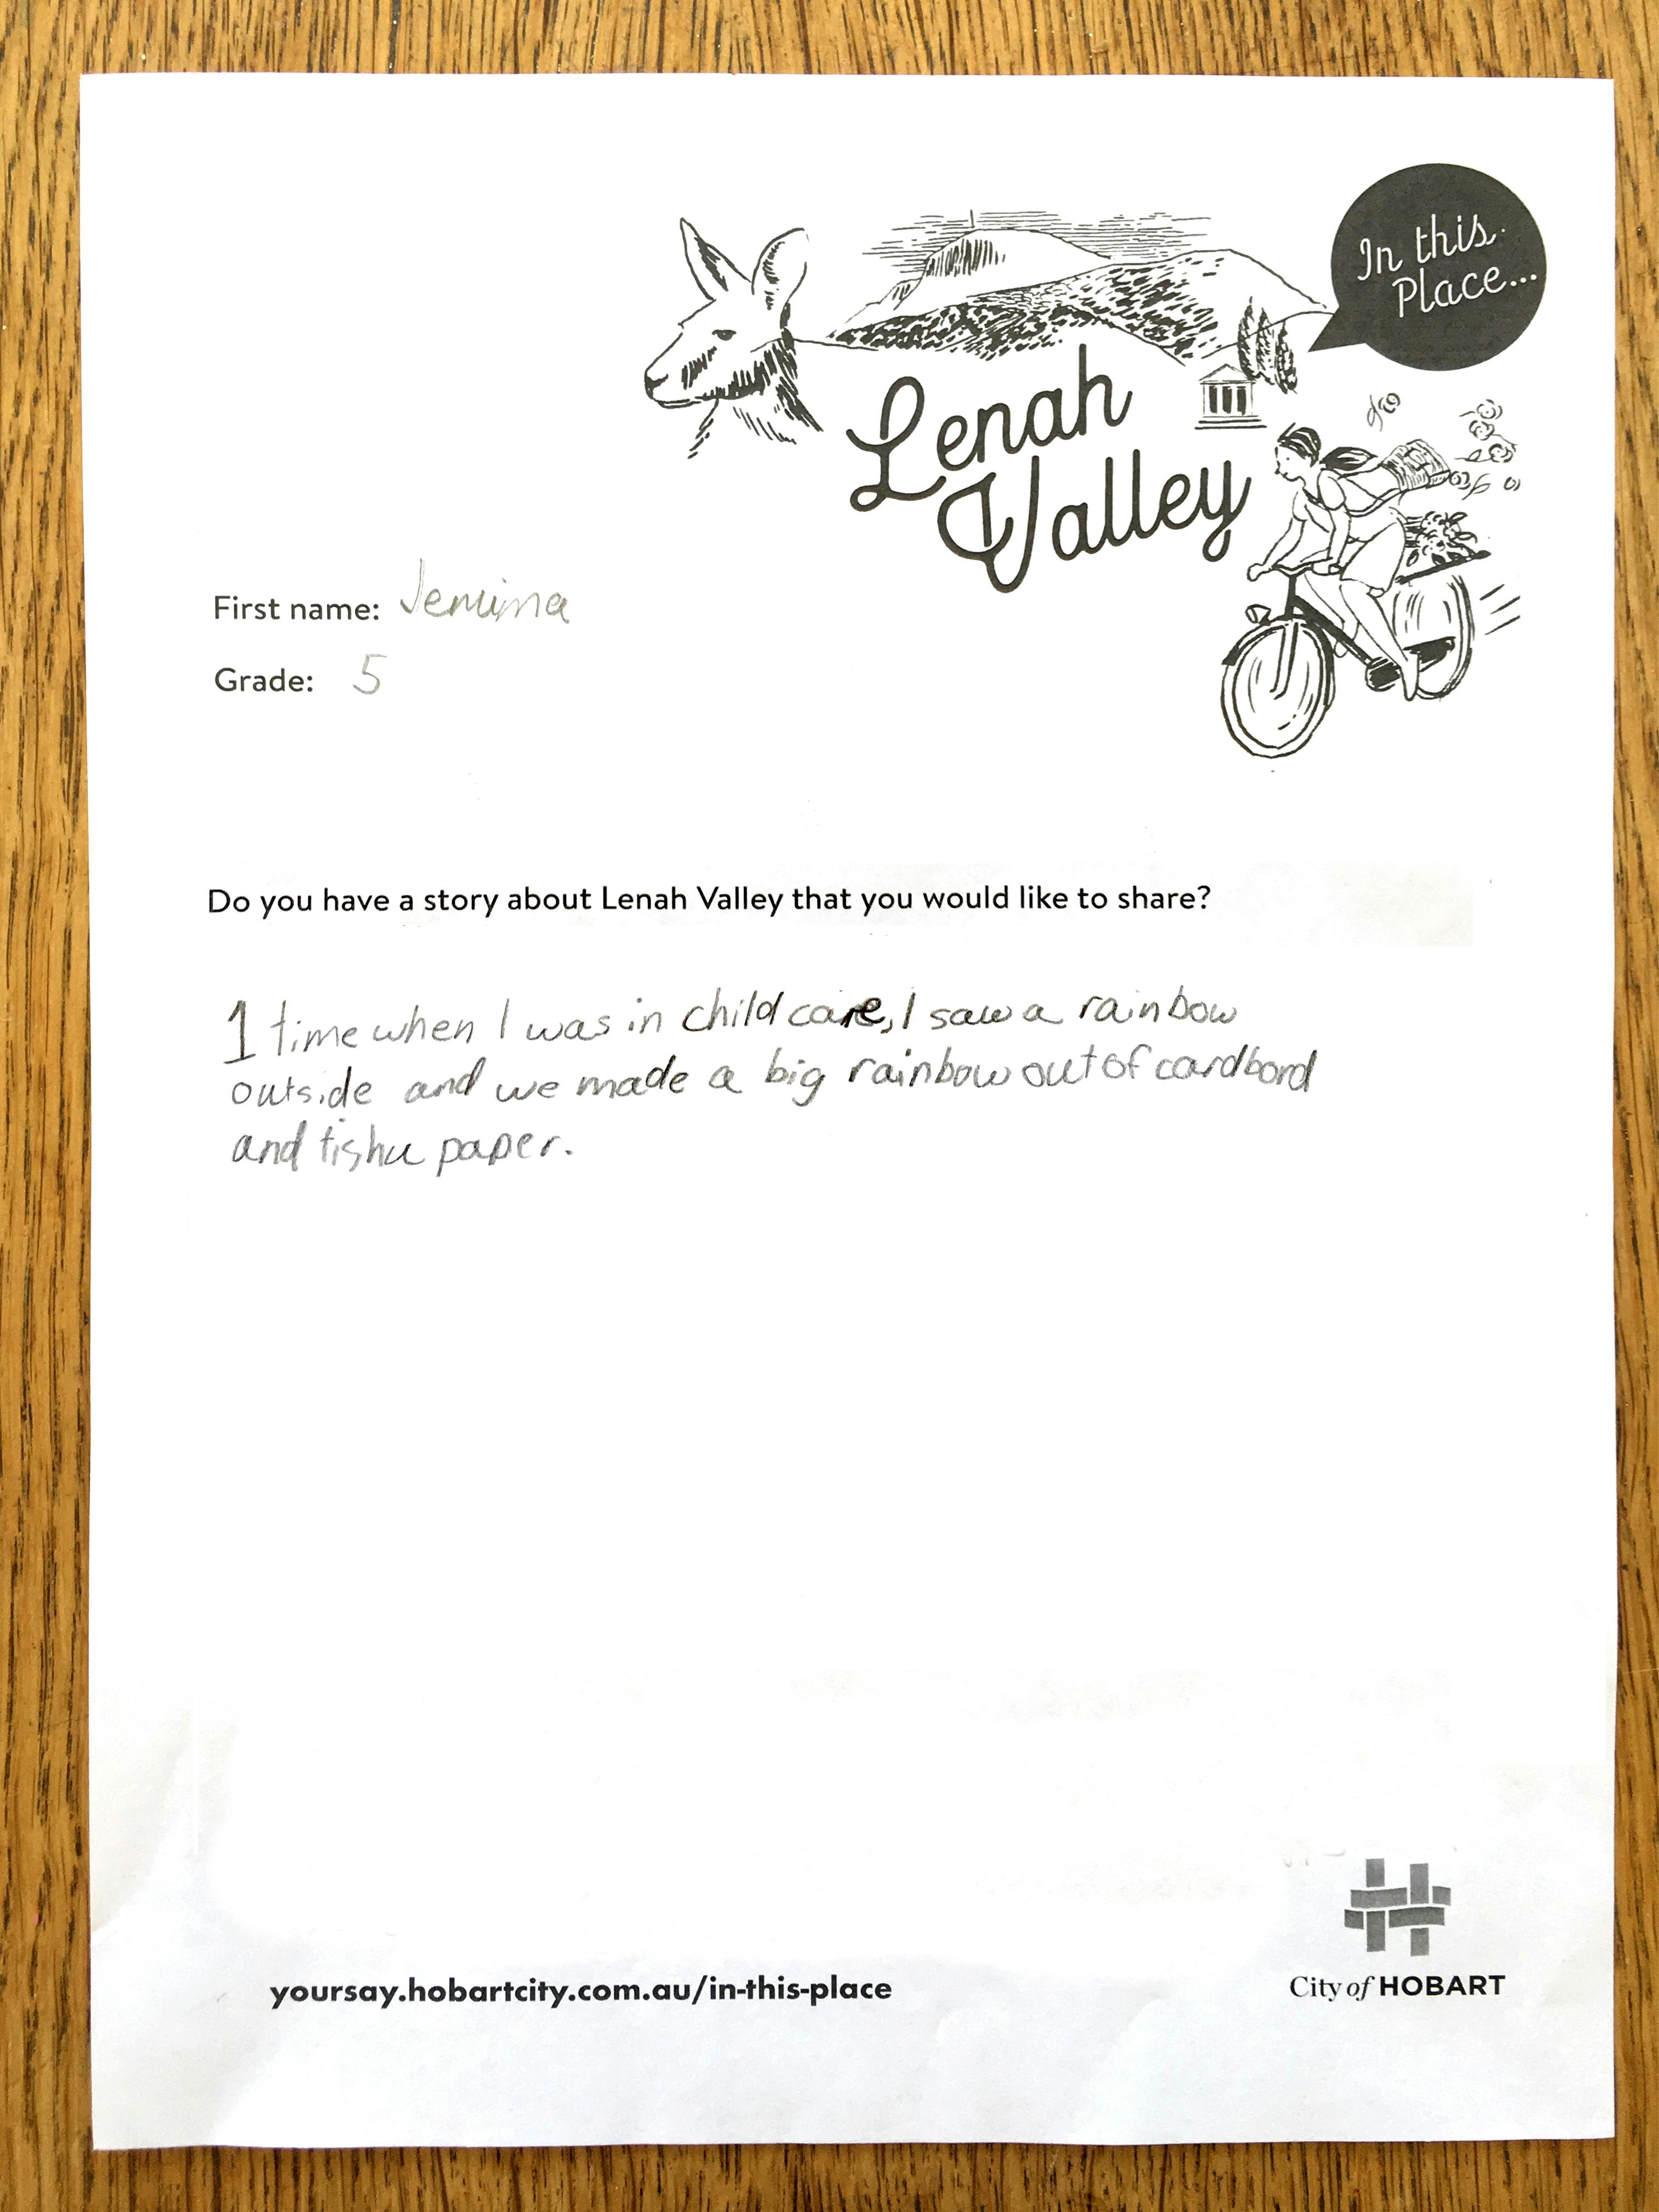 In this
Place...
Lenah
Valley
First name: Jemima
Grade: 5
Do you have a story about Lenah Valley that you would like to share?
1 time when I was in child care, I saw a rainbow
outside and we made a big rainbow out of cardbord
and tishu paper.
yoursay.hobartcity.com.au/in-this-place
City of HOBART